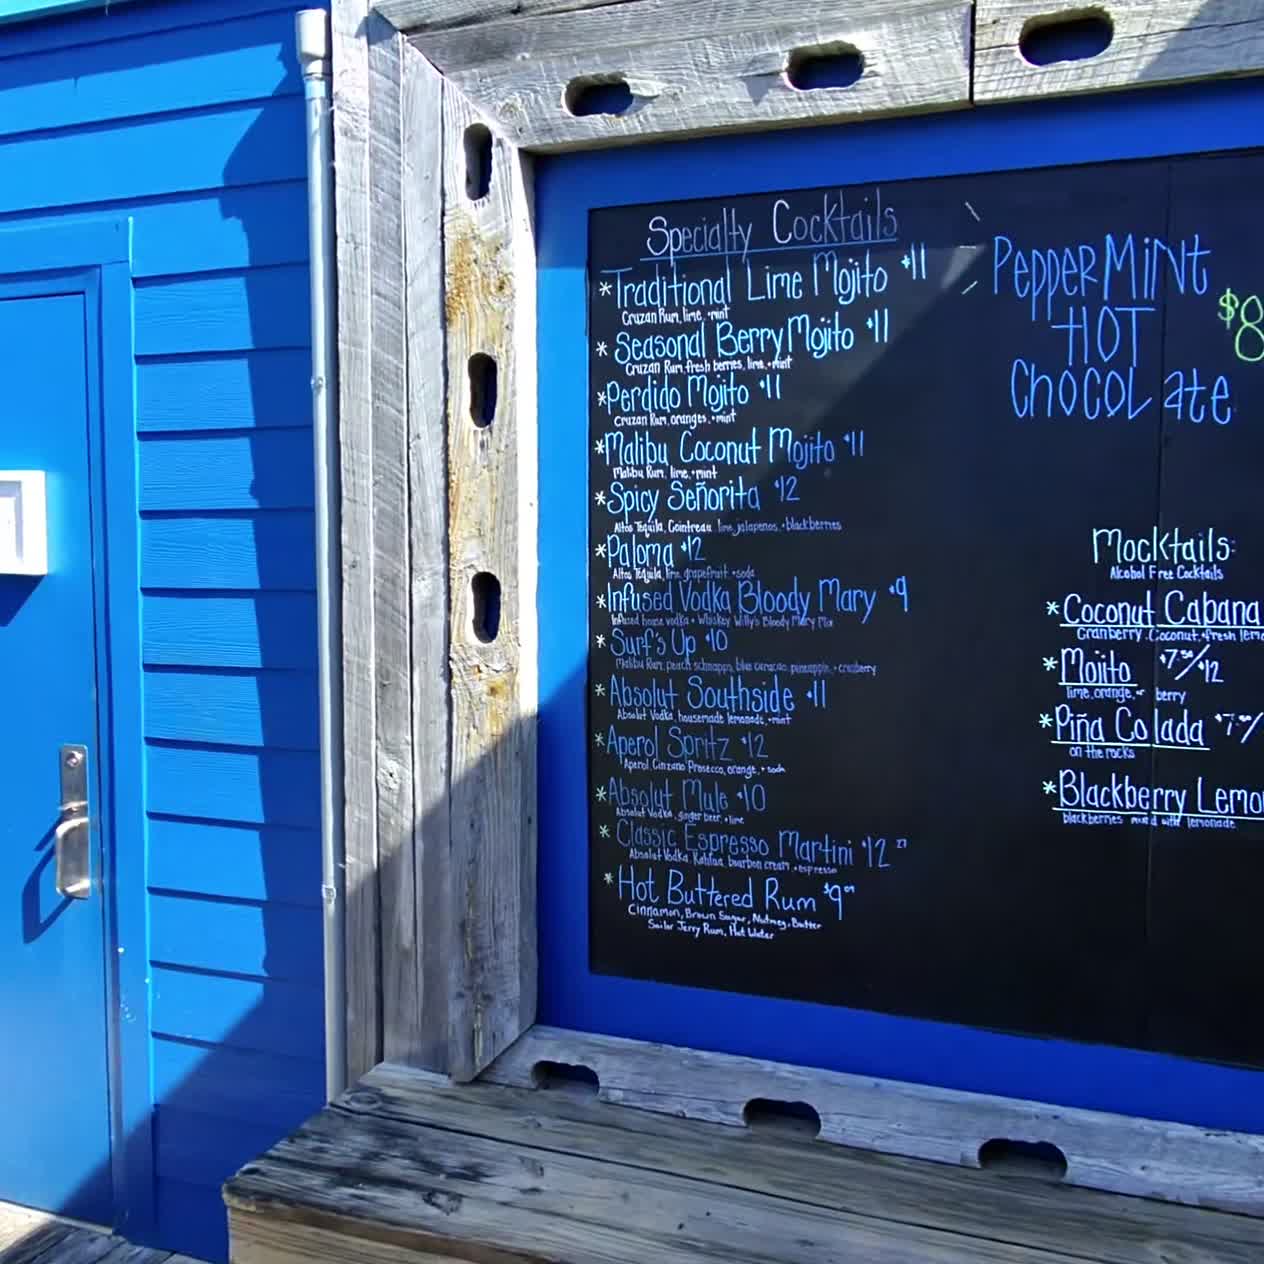 Specialty Cocktails
*Traditional Lime Mojito $11
Cruzan Rum, lime, +mint
* Seasonal Berry Mojito $11
Cruzan Rum, fresh berries, lime, +mint
*Perdido Mojito $11
Cruzan Rum, oranges, +mint
*Malibu Coconut Mojito $11
Malibu Rum, lime, +mint
*Spicy Señorita $12
Altos Tequila, Cointreau, lime, jalapenos, +blackberries
*Paloma $12
Altos Tequila, lime, grapefruit, +soda
*Infused Vodka Bloody Mary $9
Infused house vodka + Whiskey Willy's Bloody Mary Mix
*Surf's Up $10
Malibu Rum, peach schnapps, blue curacao, pineapple, +cranberry
*Absolut Southside $11
Absolut Vodka, housemade lemonade, +mint
*Aperol Spritz $12
Aperol, Cinzano Prosecco, orange, + soda
*Absolut Mule $10
Absolut Vodka, ginger beer, +lime
* Classic Espresso Martini $12
Absolut Vodka, Kahlua, bourbon cream, +espresso
* Hot Buttered Rum $9
Cinnamon, Brown Sugar, Nutmeg, Butter
Sailor Jerry Rum, Hot Water
PepperMiNt
HOT
CHOCOLate
$8
Mocktails:
Alcohol Free Cocktails
* Coconut Cabana
Cranberry, Coconut, +fresh
*Mojito $7.50/$12
lime, orange, or berry
*Piña Colada
on the rocks
*Blackberry
blackberries mixed with lemonade